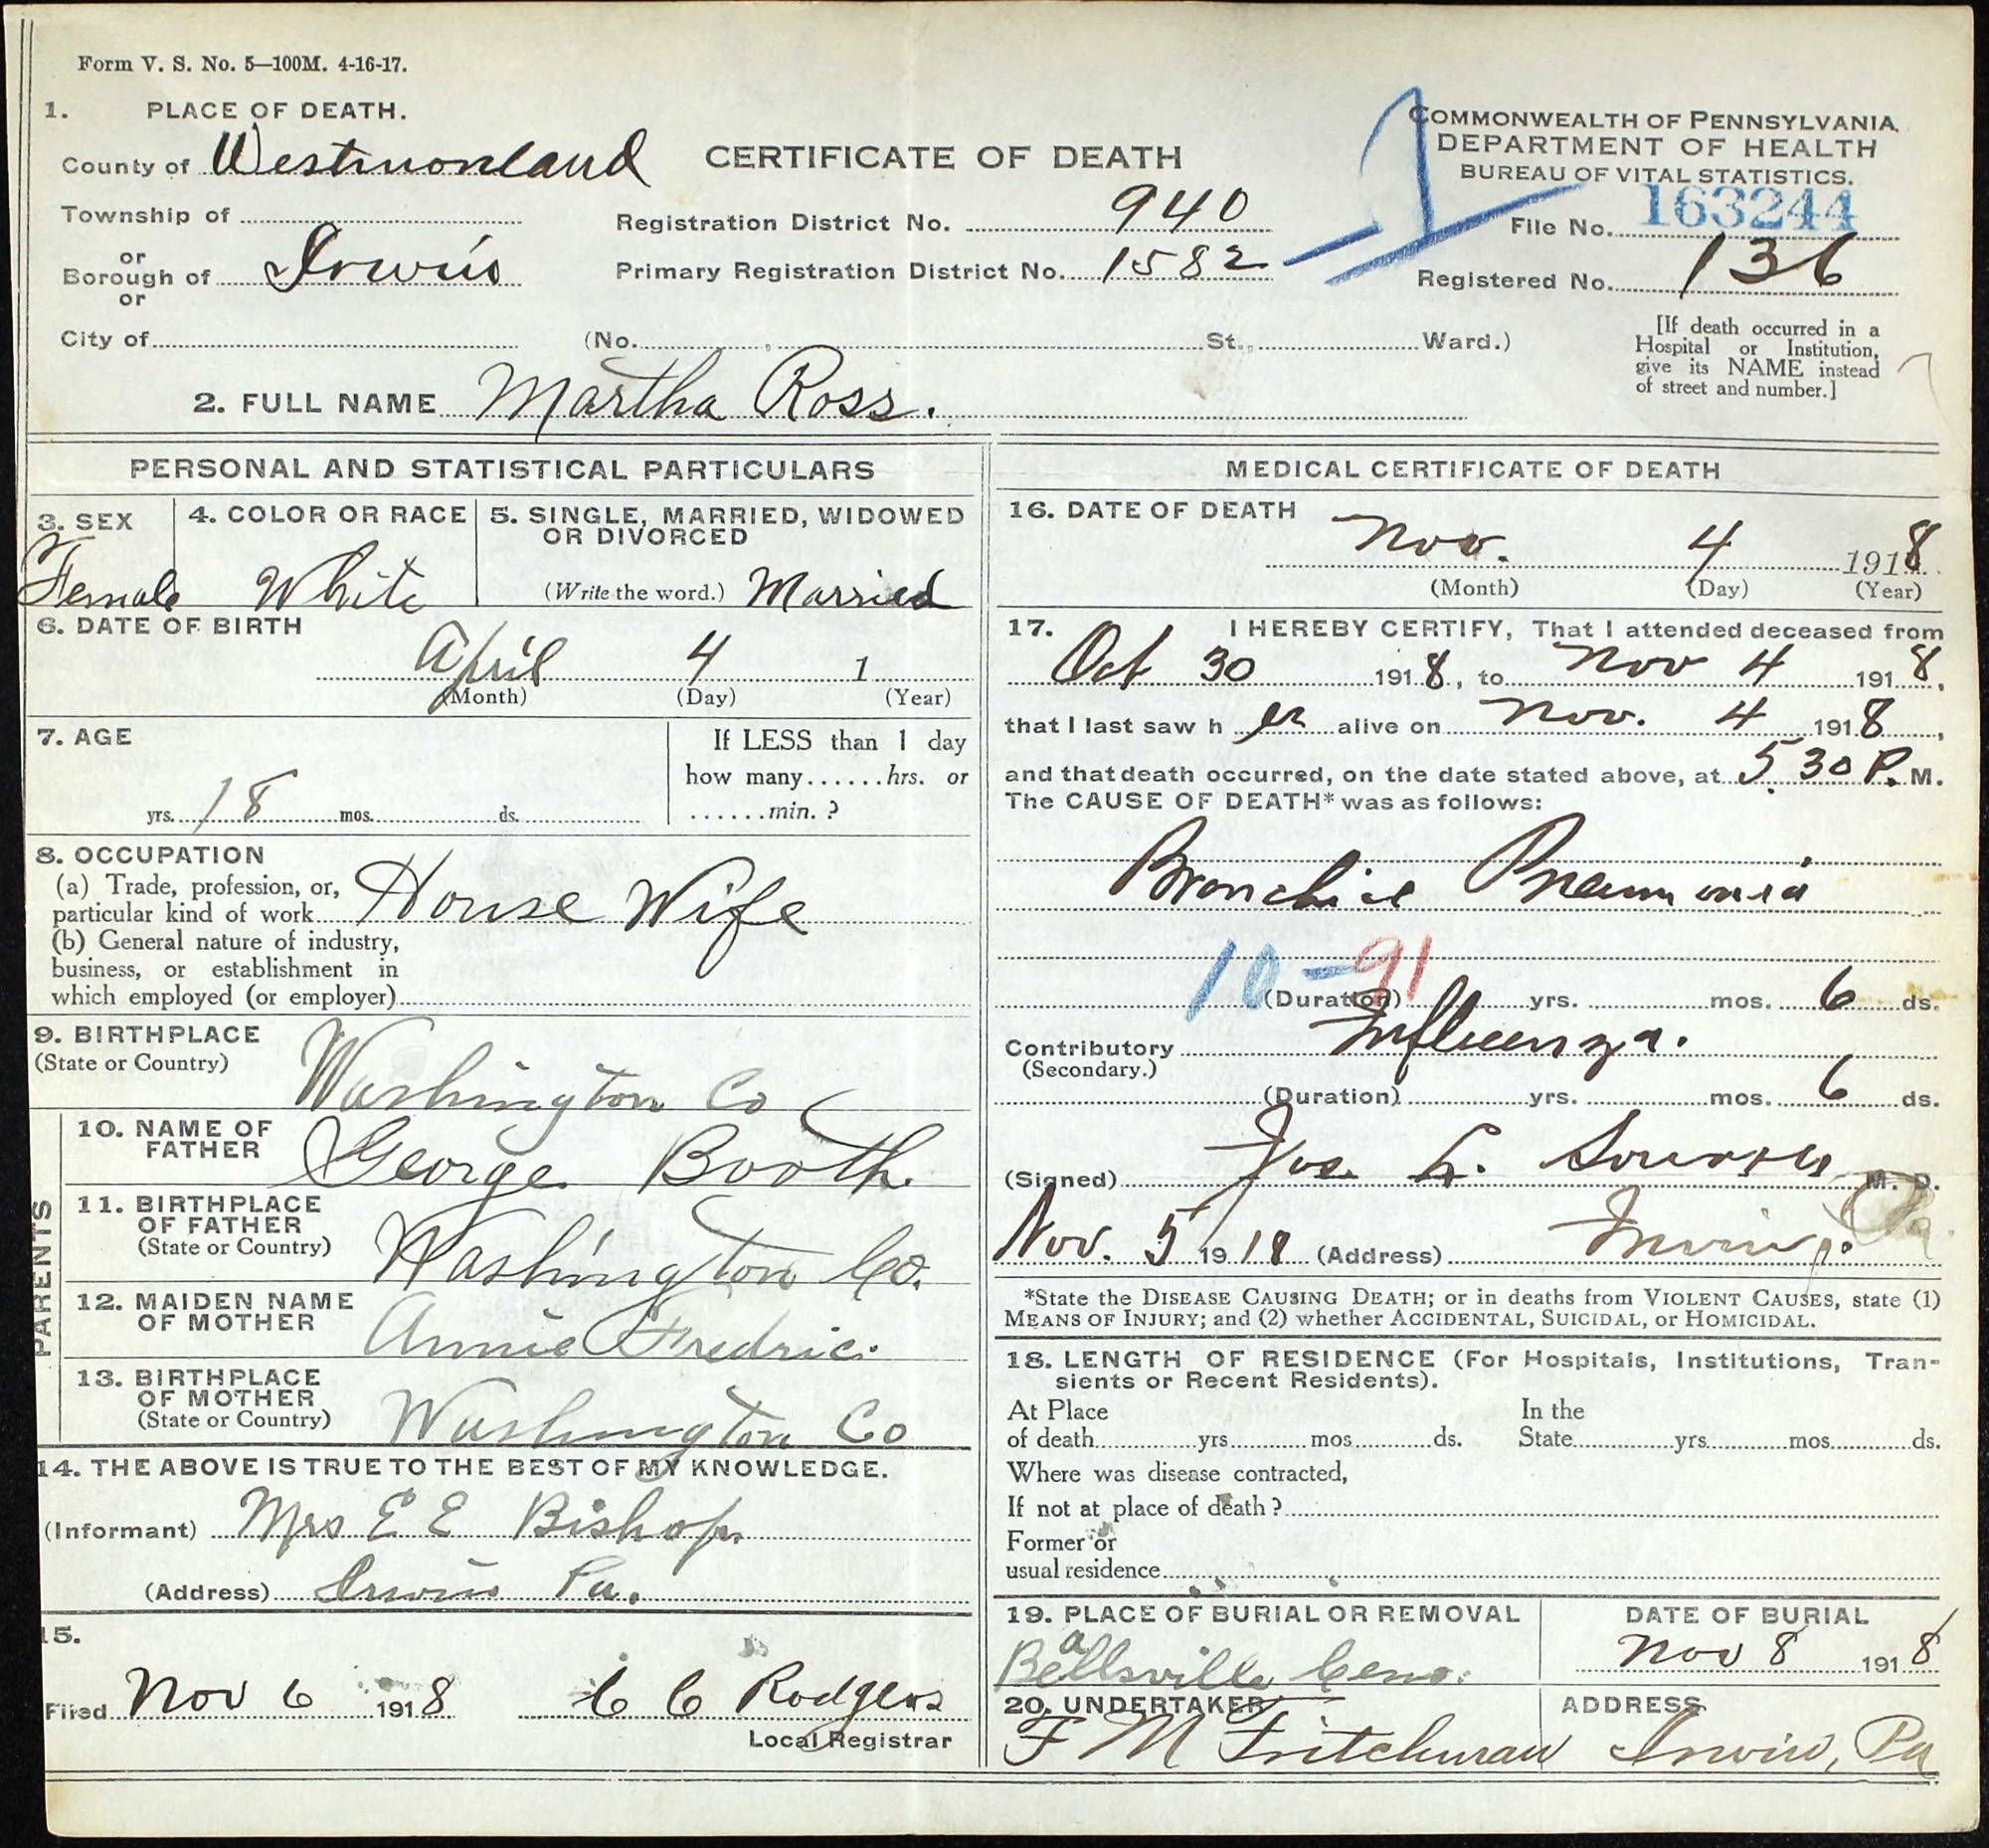 Form V. S. No. 5—100M. 4-16-17.
1. PLACE OF DEATH.
County of Westmoreland
Township of
or
Borough of Irwin
or
City of
CERTIFICATE OF DEATH
Registration District No. 940
Primary Registration District No. 1582
(No. , St., Ward.)
1
COMMONWEALTH OF PENNSYLVANIA
DEPARTMENT OF HEALTH
BUREAU OF VITAL STATISTICS.
File No. 163244
Registered No. 136
[If death occurred in a
Hospital or Institution,
give its NAME instead
of street and number.]
2. FULL NAME Martha Ross.
PERSONAL AND STATISTICAL PARTICULARS
3. SEX
Female
4. COLOR OR RACE
White
5. SINGLE, MARRIED, WIDOWED
OR DIVORCED
(Write the word.) Married
6. DATE OF BIRTH
April 4 1
(Month) (Day) (Year)
7. AGE
yrs. 18 mos. ds.
If LESS than 1 day
how many......hrs. or
......min. ?
8. OCCUPATION
(a) Trade, profession, or,
particular kind of work House Wife
(b) General nature of industry,
business, or establishment in
which employed (or employer)
9. BIRTHPLACE
(State or Country)
Washington Co
PARENTS
10. NAME OF
FATHER
George Booth.
11. BIRTHPLACE
OF FATHER
(State or Country)
Washington Co.
12. MAIDEN NAME
OF MOTHER
Annie Fredric.
13. BIRTHPLACE
OF MOTHER
(State or Country)
Washington Co
14. THE ABOVE IS TRUE TO THE BEST OF MY KNOWLEDGE.
(Informant) Mrs E E Bishop
(Address) Irwin Pa.
15.
Filed Nov 6 1918 C C Rodgers
Local Registrar
MEDICAL CERTIFICATE OF DEATH
16. DATE OF DEATH
Nov. 4 1918
(Month) (Day) (Year)
17. I HEREBY CERTIFY, That I attended deceased from
Oct 30 1918, to Nov 4 1918,
that I last saw h er alive on Nov. 4 1918,
and that death occurred, on the date stated above, at 5.30 P. M.
The CAUSE OF DEATH* was as follows:
Bronchial Pneumonia
10-91
(Duration) yrs. mos. 6 ds.
Contributory Influenza.
(Secondary.)
(Duration) yrs. mos. 6 ds.
(Signed) Jos. M. D.
Nov. 5 1918 (Address) Irwin, Pa.
*State the DISEASE CAUSING DEATH; or in deaths from VIOLENT CAUSES, state (1)
MEANS OF INJURY; and (2) whether ACCIDENTAL, SUICIDAL, or HOMICIDAL.
18. LENGTH OF RESIDENCE (For Hospitals, Institutions, Tran-
sients or Recent Residents).
At Place
of death yrs mos ds.
In the
State yrs mos ds.
Where was disease contracted,
If not at place of death ?
Former or
usual residence
19. PLACE OF BURIAL OR REMOVAL
Bellsville Cem.
DATE OF BURIAL
Nov 8 1918
20. UNDERTAKER
F M Fritchman
ADDRESS
Irwin, Pa